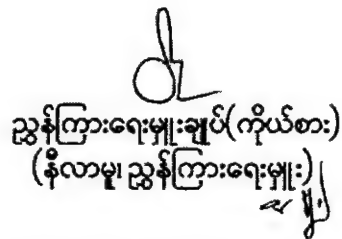 ညွှန်ကြားရေးမှူးချုပ်(ကိုယ်စား)
(နီလာမူ၊ ညွှန်ကြားရေးမှူး)